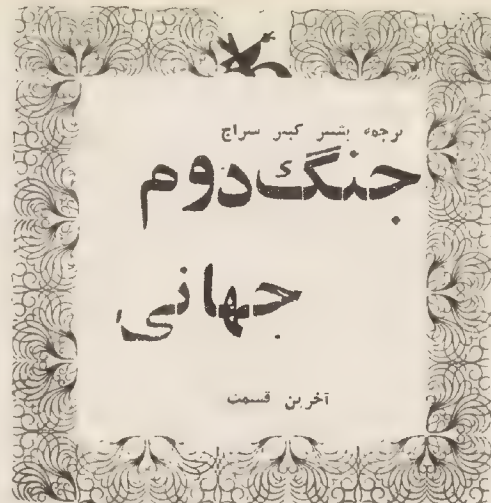 ترجمه بشیر کبیر سراج
جنگ دوم
جهانی
آخرین قسمت